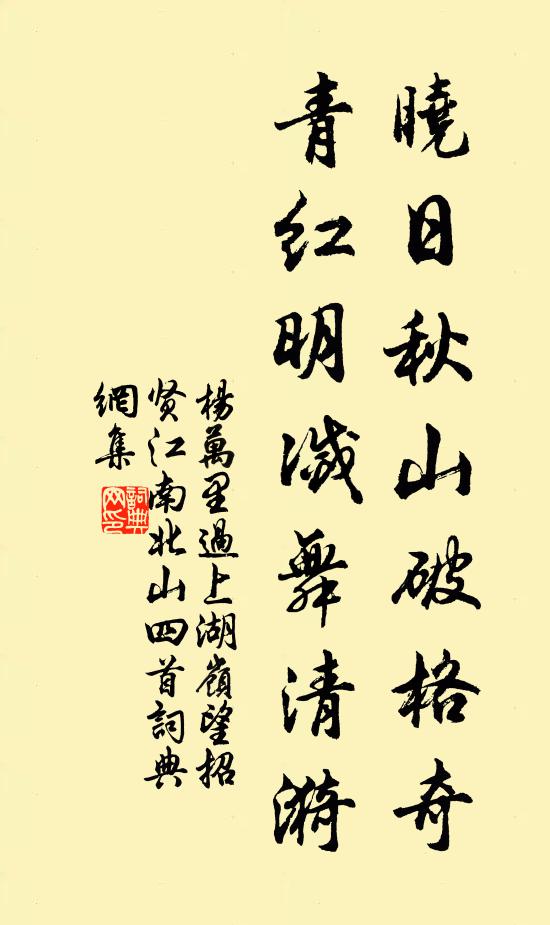 曉日秋山破格奇
青紅明滅舞清漪
楊萬里過上湖嶺望招
贤江南北山四首詞典
網集
詞典
网印